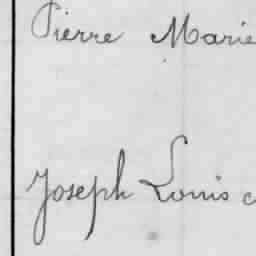 Pierre Marie
Joseph Louis